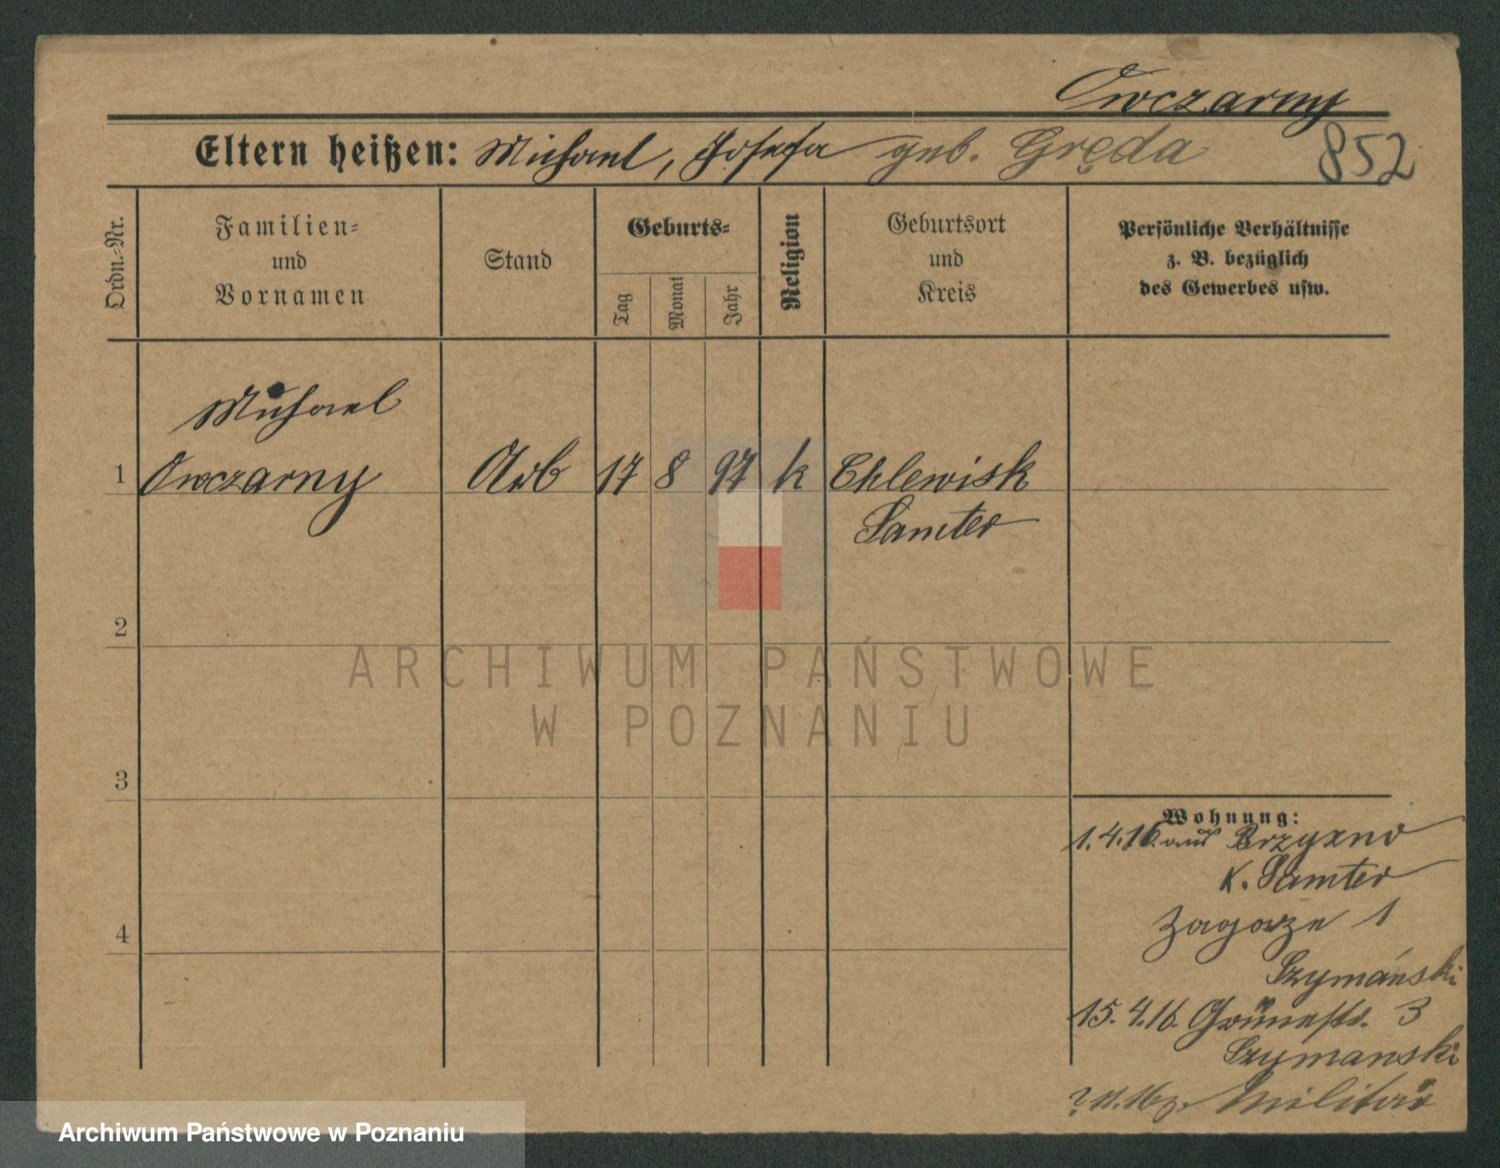 Owczarny
Eltern heißen: Michael, Josefa geb. Gręda
852
Ordn.-Nr.
Familien-
und
Vornamen
Stand
Geburts-
Tag
Monat
Jahr
Religion
Geburtsort
und
Kreis
Persönliche Verhältnisse
z. B. bezüglich
des Gewerbes usw.
Michael
1 Owczarny Arb 17 8 97 k Chlewisk
Samter
2
3
4
Wohnung:
1.4.16. aus Brzyzno
K. Samter
Zagorze 1
Szymański
15.4.16. Grünestr. 3
Szymanski
z. Militär
ARCHIWUM PAŃSTWOWE
W POZNANIU
Archiwum Państwowe w Poznaniu